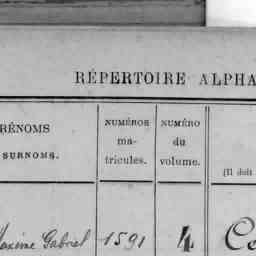 RÉPERTOIRE ALPHA
RÉNOMS
SURNOMS.
NUMÉROS
ma-
tricules.
NUMÉRO
du
volume.
(Il doit
Maxime Gabriel 1591 4 Ce